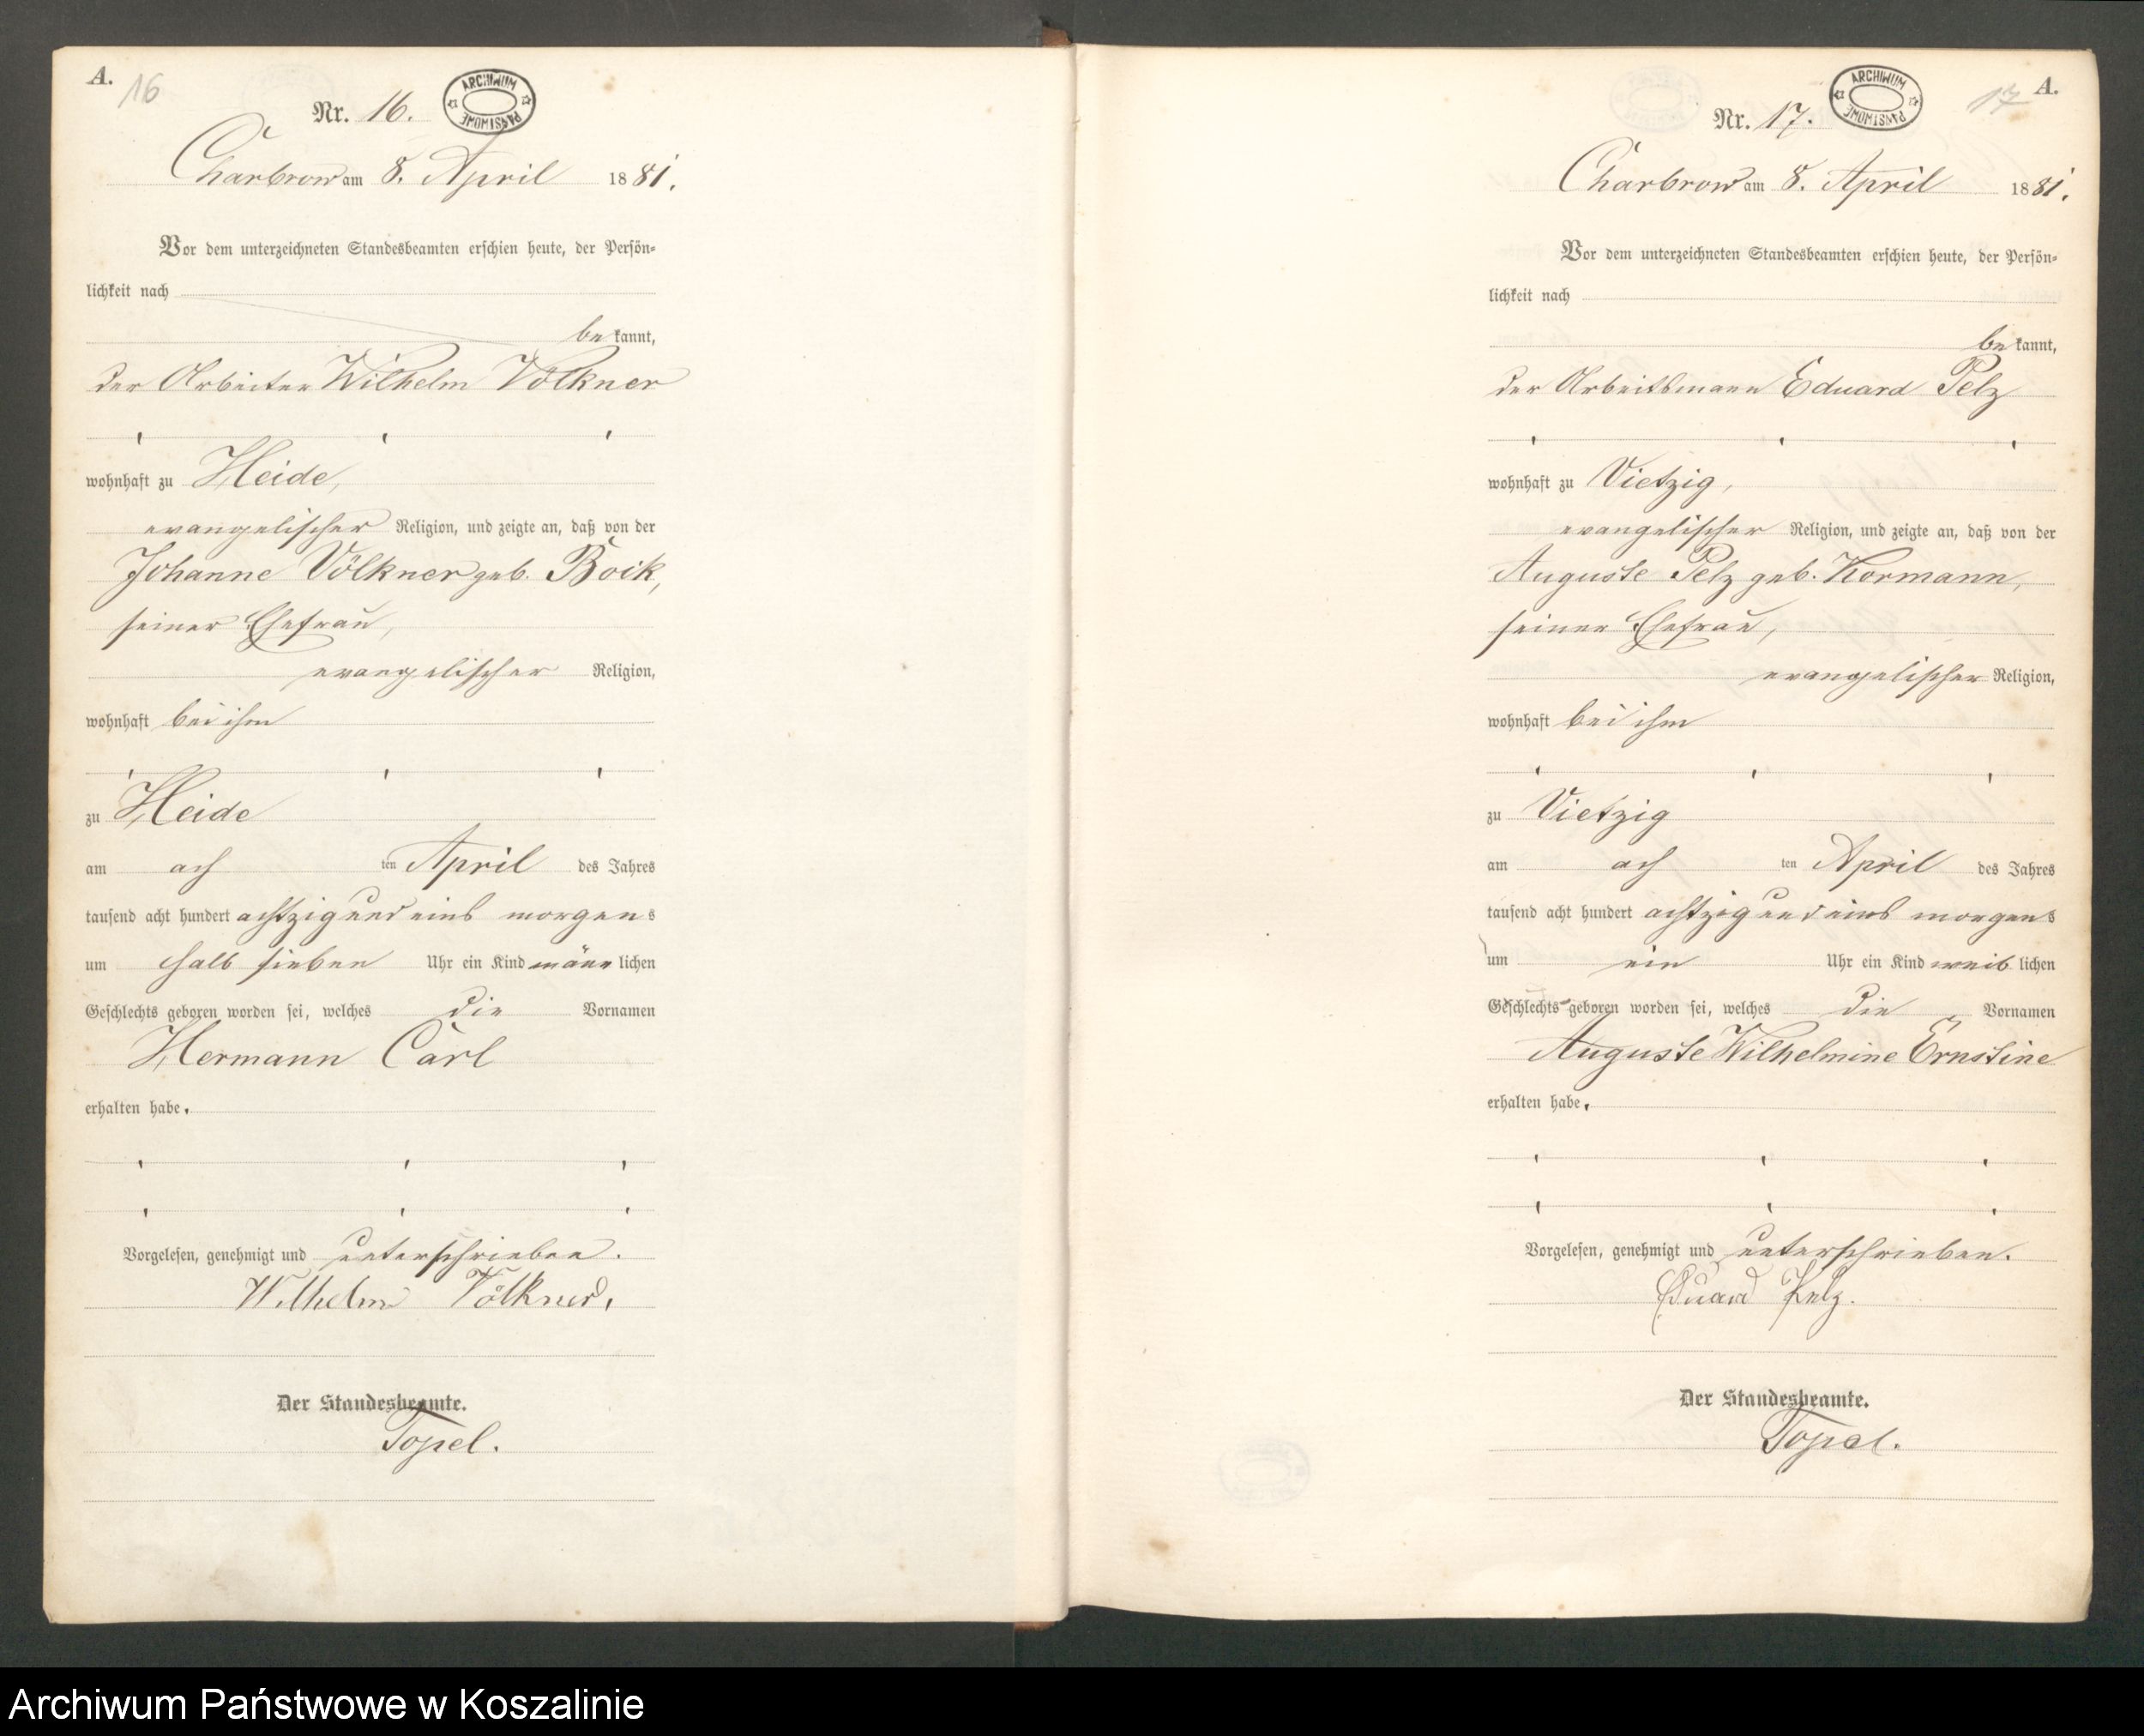 A.
16
Nr. 16.
ARCHIWUM PAŃSTWOWE
Charbrow am 8. April 1881.
Vor dem unterzeichneten Standesbeamten erschien heute, der Persön-
lichkeit nach
bekannt,
der Arbeiter Wilhelm Völkner
wohnhaft zu Heide,
evangelischer Religion, und zeigte an, daß von der
Johanne Völkner geb. Boik,
seiner Ehefrau,
evangelischer Religion,
wohnhaft bei ihm
zu Heide
am ach ten April des Jahres
tausend acht hundert achtzig und eins morgens
um halb sieben Uhr ein Kind männlichen
Geschlechts geboren worden sei, welches die Vornamen
Hermann Carl
erhalten habe.
Vorgelesen, genehmigt und unterschrieben.
Wilhelm Völkner.
Der Standesbeamte.
Topel.
A.
17
Nr. 17.
ARCHIWUM PAŃSTWOWE
Charbrow am 8. April 1881.
Vor dem unterzeichneten Standesbeamten erschien heute, der Persön-
lichkeit nach
bekannt,
der Arbeitsmann Eduard Pelz
wohnhaft zu Vietzig,
evangelischer Religion, und zeigte an, daß von der
Auguste Pelz geb. Kormann,
seiner Ehefrau,
evangelischer Religion,
wohnhaft bei ihm
zu Vietzig
am ach ten April des Jahres
tausend acht hundert achtzig und eins morgens
um ein Uhr ein Kind weiblichen
Geschlechts geboren worden sei, welches die Vornamen
Auguste Wilhelmine Ernstine
erhalten habe.
Vorgelesen, genehmigt und unterschrieben.
Eduard Pelz.
Der Standesbeamte.
Topel.
Archiwum Państwowe w Koszalinie